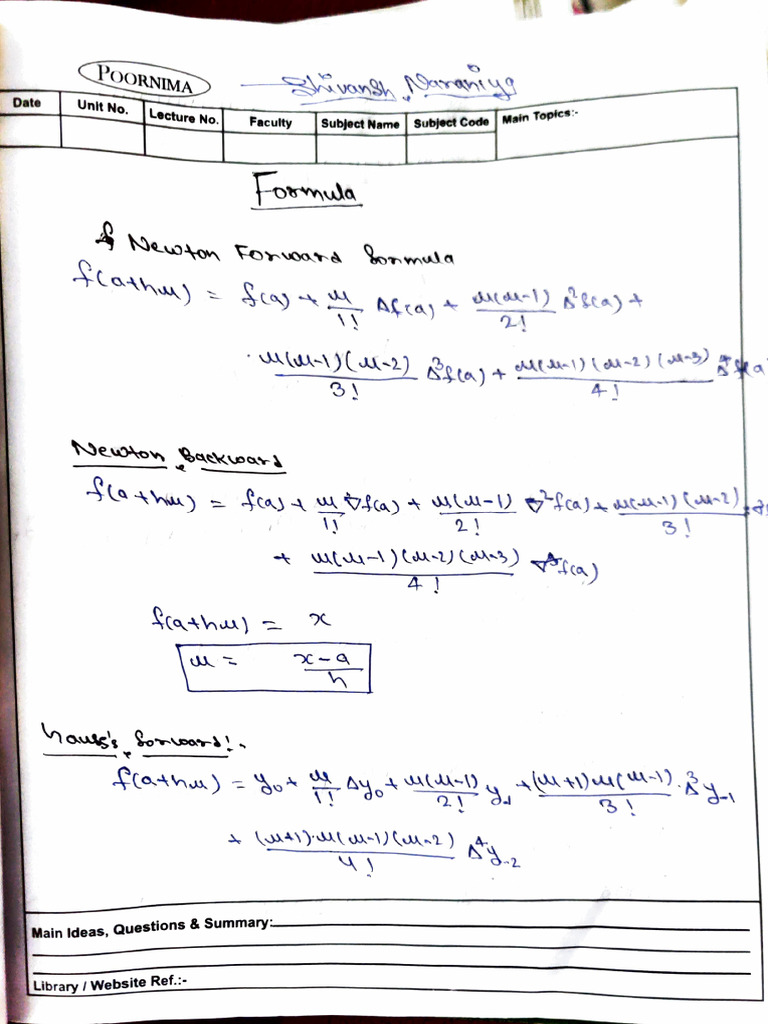 POORNIMA
Shivansh Naraniya
Date Unit No. Lecture No. Faculty Subject Name Subject Code Main Topics:-
Formula
Newton Forward formula
f(a+hu) = f(a) + u/1! Δf(a) + u(u-1)/2! Δ²f(a) +
u(u-1)(u-2)/3! Δ³f(a) + u(u-1)(u-2)(u-3)/4! Δ⁴f(a
Newton Backward
f(a+hu) = f(a) + u/1! ∇f(a) + u(u-1)/2! ∇²f(a) + u(u-1)(u-2)/3!
+ u(u-1)(u-2)(u-3)/4! f(a)
f(a+hu) = x
u = x-a/h
forward!-
f(a+hu) = y₀ + u/1! Δy₀ + u(u-1)/2! y₋₁ + (u+1)u(u-1)/3! . Δ³y₋₁
+ (u+1).u(u-1)(u-2)/4! Δ⁴y₋₂
Main Ideas, Questions & Summary:
Library / Website Ref.:-